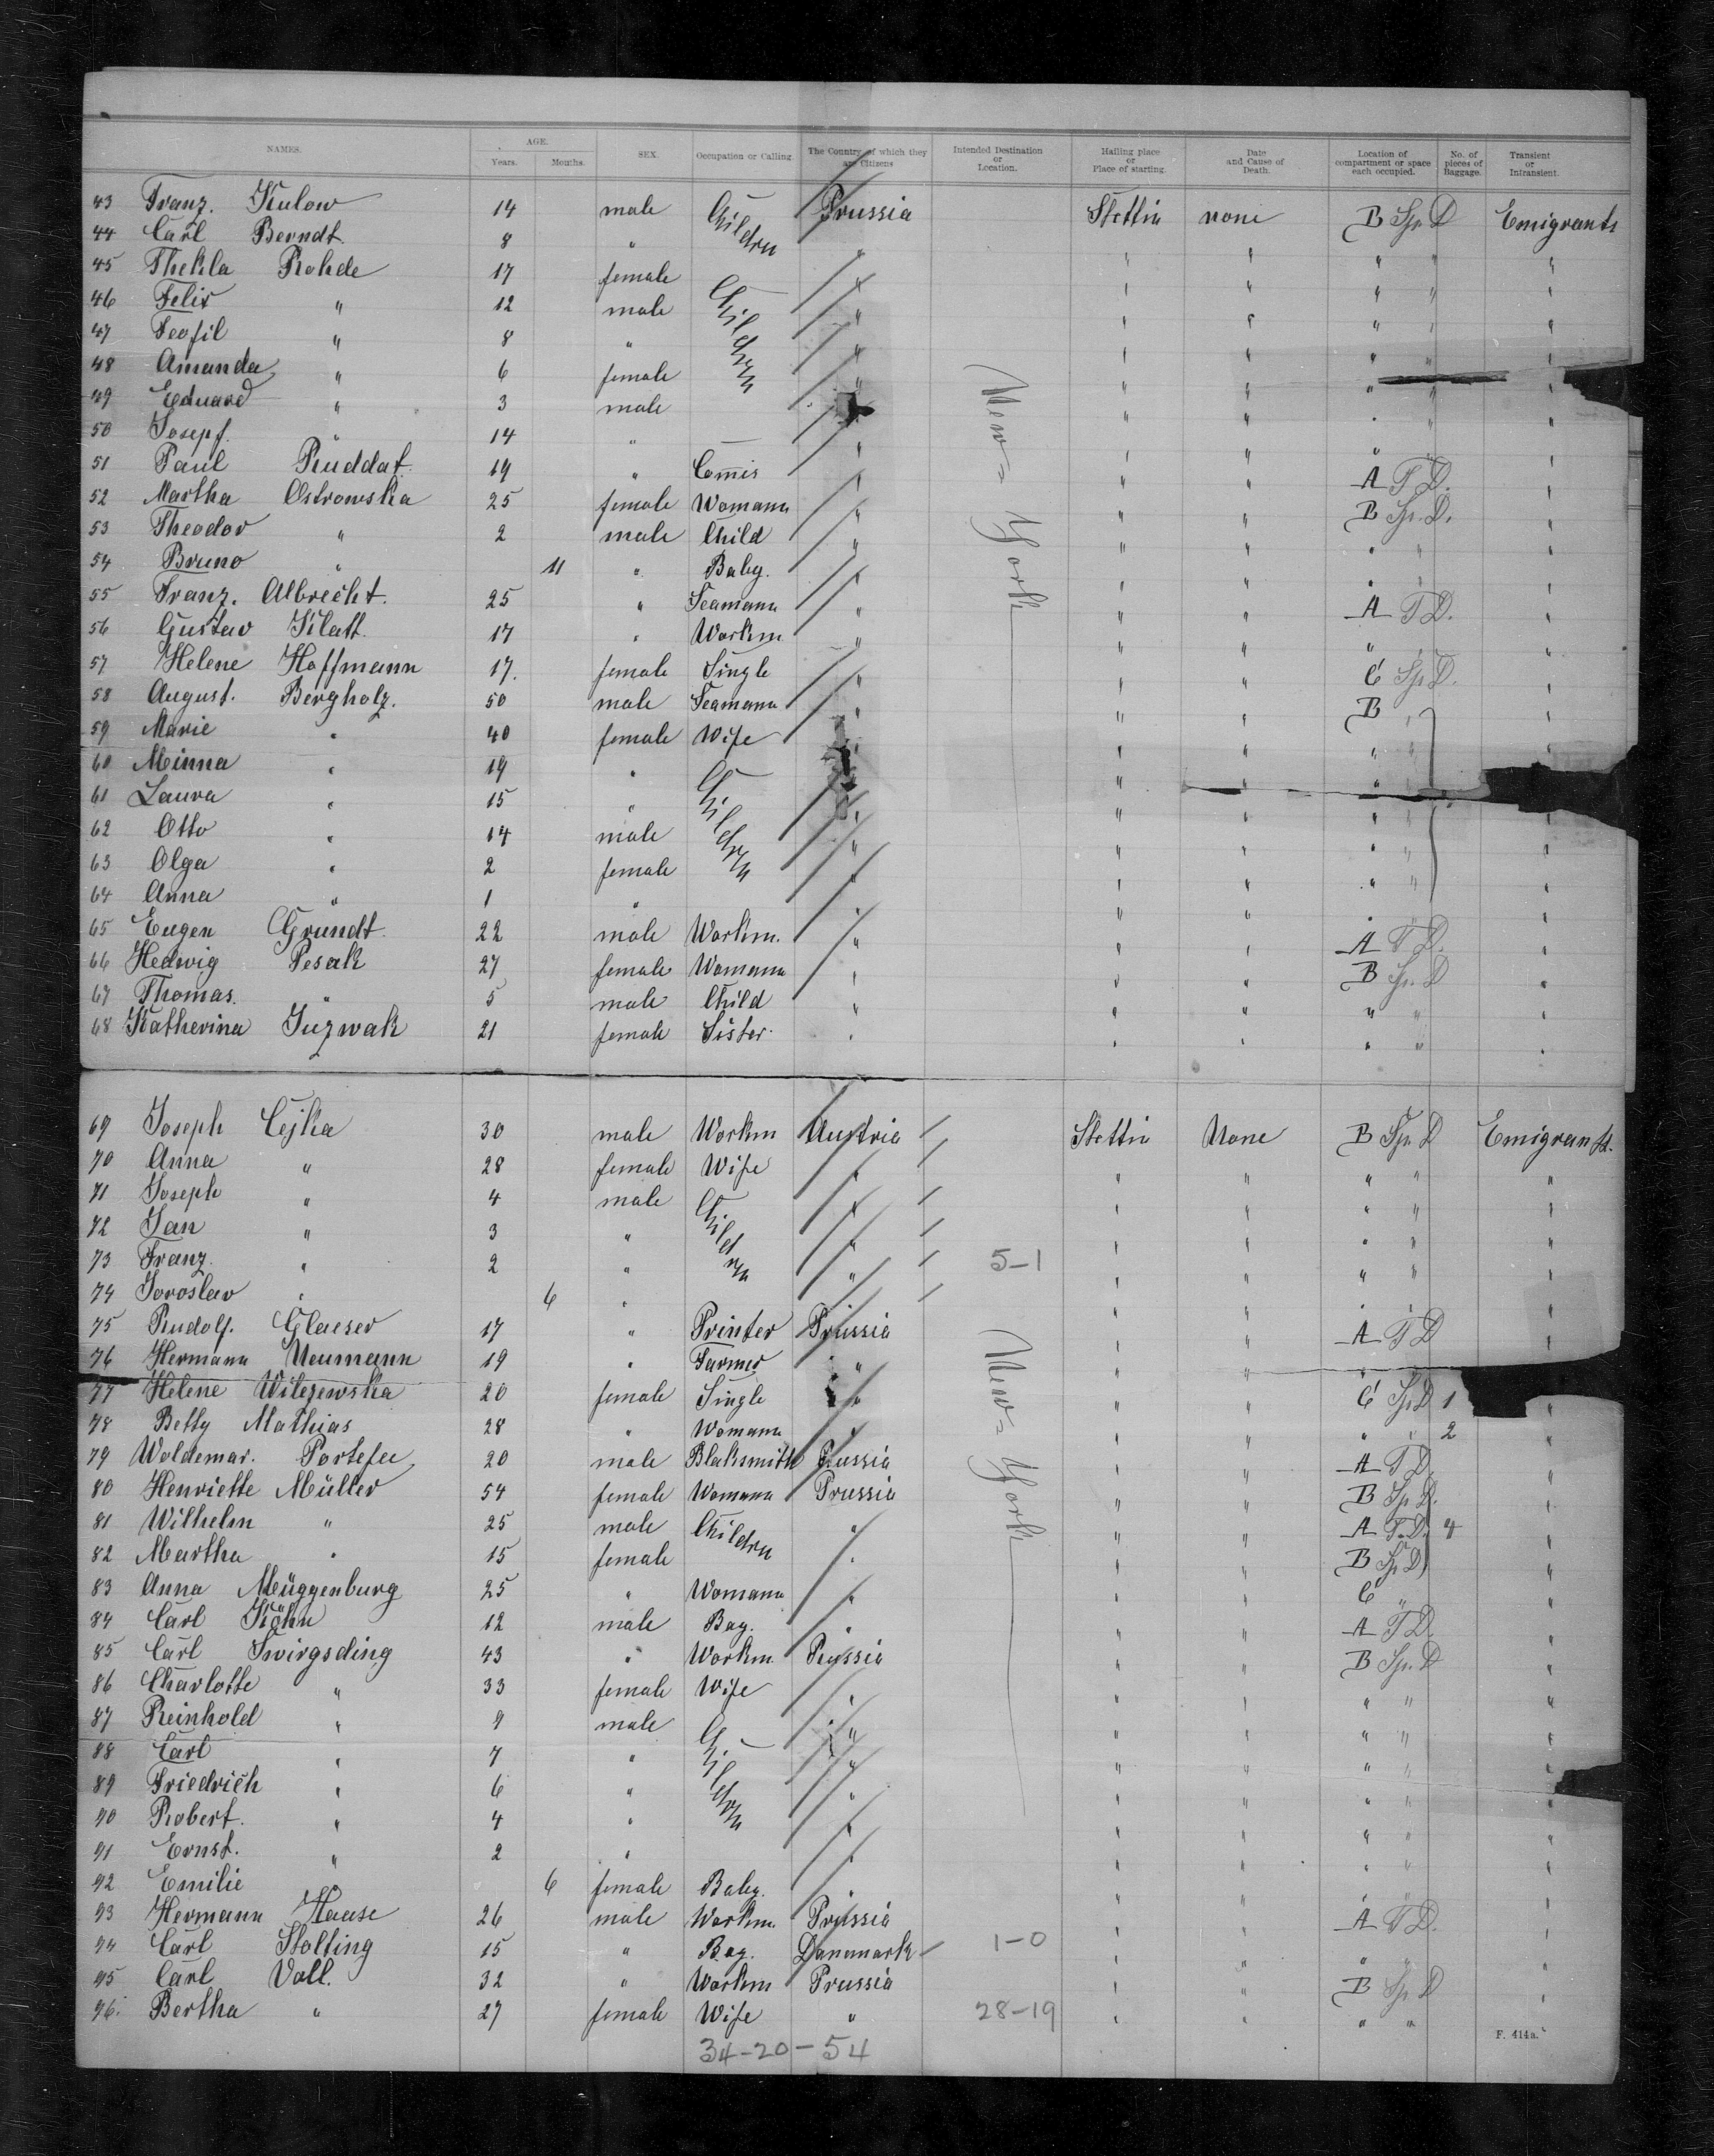 NAMES. AGE. Years. Months. SEX. Occupation or Calling. The Country of which they are Citizens Intended Destination or Location. Hailing place or Place of starting. Date and Cause of Death. Location of compartment or space each occupied. No. of pieces of Baggage. Transient or Intransient.
43 Franz. Kulow 14 male Children Prussia Stettin none B Sp. D Emigrants
44 Carl Berndt. 8 " " " " " " "
45 Thekla Rohde 17 female Children " " " " " "
46 Felix " 12 male " " " " " "
47 Teofil " 8 " " " " " " "
48 Amanda " 6 female " " " " " "
49 Eduard " 3 male " " " " " "
50 Josepf. " 14 " " " " " " "
51 Paul Ruddat. 19 " Commis " " " A T D. "
52 Martha Ostrowska 25 female Womann " " " B Sp. D. "
53 Theodor " 2 male Child " " " " " "
54 Bruno " 11 " Baby. " " " " " "
55 Franz. Albrecht. 25 " Seamann " " " A T D. "
56 Gustav Kilatt. 17 " Workm " " " " " "
57 Helene Hoffmann 17. female Single " " " C Sp D. "
58 August. Bergholz. 50 male Seamann " " " B " "
59 Marie " 40 female Wife " " " " " "
60 Minna " 19 " Children " " " " " "
61 Laura " 15 " " " " " " "
62 Otto " 14 male " " " " " "
63 Olga " 2 female " " " " " "
64 Anna " 1 " " " " " " "
65 Eugen Grundt. 22 male Workm. " " " A T D. "
66 Hedwig Pesak 27 female Womann " " " B Sp. D "
67 Thomas. " 5 male Child " " " " " "
68 Katherina Juzwak 21 female Sister. " " " " " "
New=York
69 Joseph Cejka 30 male Workm Austria Stettin None B Sp. D Emigrants.
70 Anna " 28 female Wife " " " " " "
71 Joseph " 4 male Children " " " " " "
72 Jan " 3 " " " " " " "
73 Franz. " 2 " " 5-1 " " " " "
74 Joroslav " 6 " " " " " " "
75 Rudolf. Glaeser 17 " Printer Prussia " " A T D "
76 Hermann Neumann 19 " Farmer " " " " " "
77 Helene Wilezewska 20 female Single " " " C Sp D 1 "
78 Betty Mathias 28 " Womann " " " " " 2 "
79 Woldemar. Portefee 20 male Blaksmith Russia " " A T D. "
80 Henriette Müller 54 female Womann Prussia " " B Sp D. "
81 Wilhelm " 25 male Children " " " A T. D. 4 "
82 Martha " 15 female " " " B Sp D "
83 Anna Müggenburg 25 " Womann " " " C " "
84 Carl Köhn 12 male Boy. " " " A T D. "
85 Carl Swirgsding 43 " Workm Russia " " B Sp. D "
86 Charlotte " 33 female Wife " " " " " "
87 Reinhold " 9 male Children " " " " " "
88 Carl " 7 " " " " " " "
89 Friedrich " 6 " " " " " " "
90 Robert. " 4 " " " " " " "
91 Ernst. " 2 " " " " " " "
92 Emilie " 6 female Baby. " " " " " "
93 Hermann Haase 26 male Workm. Prussia " " A T D. "
94 Carl Stolting 15 " Boy. Danmark 1-0 " " " " "
95 Carl Voll. 32 " Workm Prussia " " B Sp D "
96. Bertha " 27 female Wife " 28-19 " " " "
New=York
34-20-54
F. 414a.